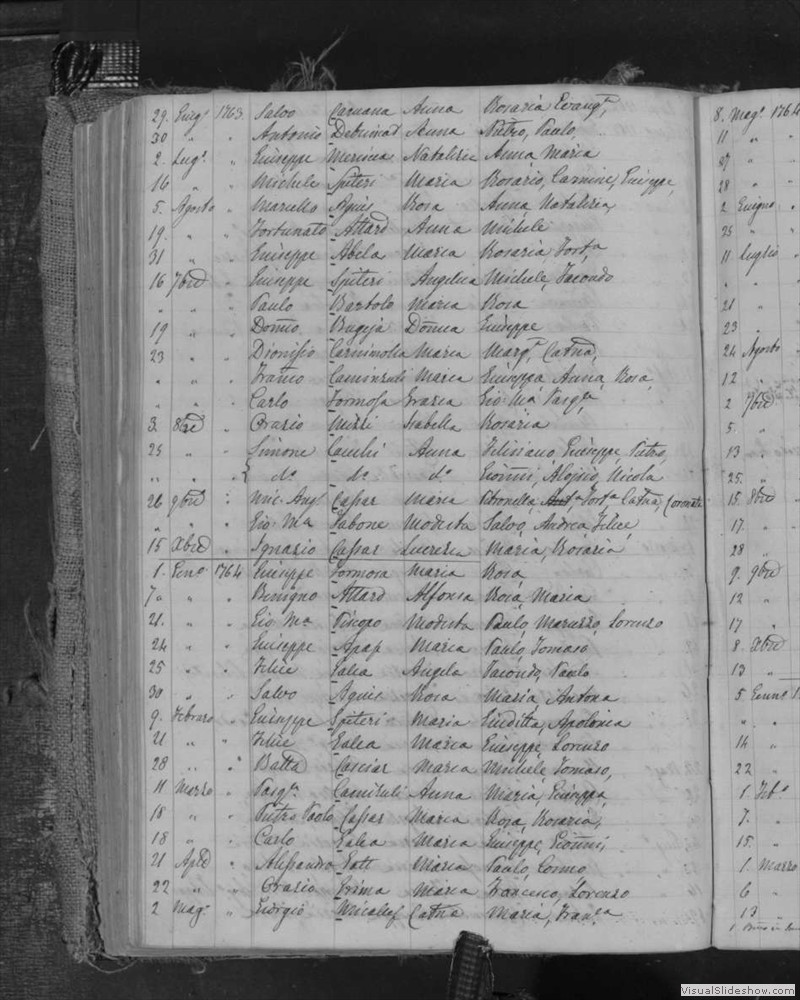 29. Giug.o 1763. Salvo Caruana Anna Rosaria Evang.ta
30 " " Antonio Anna Pietro, Paulo,
2. Lug.o " Giuseppe Natalizia Anna Maria
16 " " Michele Spiteri Maria Rosario, Carmine, Giuseppe,
5. Agosto " Marcello Agius Rosa Anna, Natalizia,
19. " " Fortunato Attard Anna Michele
31 " " Giuseppe Abela Maria Rosaria Fort.a
16 7bre " Giuseppe Spiteri Angelica Michele, Facondo
" " " Paulo Bartolo Maria Rosa
19 " " Dom.co Bugeja Dom.ca Giuseppe
23 " " Dionisio Maria Marg.ta Catna,
" " " Franco Maria Giuseppa, Anna, Rosa,
" " " Carlo Formosa Grazia Gio: Ma. Pasq.le
3. 8bre " Orazio Mizzi Isabella Rosaria
25 " " Simone Anna Feliciano Giuseppe, Pietro,
" " " { do. do. do. Gionni, Aloisio, Nicola
26 9bre " Mic. Ang.o Cassar Maria Petronella Fort.a Catna,
" " " Gio: Ma Zabone Modesta Salvo, Andrea, Felice,
15 Xbre " Ignazio Cassar Lucrezia Maria, Rosaria
1. Genn.o 1764 Giuseppe Formosa Maria Rosa,
7. " " Benigno Attard Alfonsa Rosa, Maria
21. " " Gio: Ma Piscopo Modesta Paulo, Maruzzo, Lorenzo
24 " " Giuseppe Apap Maria Paulo, Tomaso
25 " " Felice Galea Angela Facondo, Paulo
30 " " Salvo Agius Rosa Maria, Antona
9. Febraro " Giuseppe Spiteri Maria Giuditta, Apolonia
21 " " Felice Galea Maria Giuseppe, Lorenzo
28 " " Batta Casciar Maria Michele, Tomaso,
11 Marzo " Pasq.le Anna Maria, Giuseppa,
18 " " Pietro Paolo Cassar Maria Rosa, Rosaria,
18 " " Carlo Galea Maria Giuseppe, Gionni,
21 Aple " Alessandro Maria Paulo, Cosmo
22 " " Orazio Grima Maria Francesco, Lorenzo
2 Mag.o " Giorgio Micallef Catna Maria, Fran.ca
8. Mag.o 1764
11 " "
27 "
28 "
2 Giugno "
25 "
11 Luglio "
" "
21 "
23 "
24 Agosto "
12 "
2 7bre
5. "
13 "
25. "
15. 8bre
17. "
28 "
9. 9bre
12 "
17 "
8. Xbre
13 "
5 Genn.o
" "
14 "
22 "
1. Feb.o
7. "
15. "
1. Marzo
6 "
13 "
VisualSlideshow.com